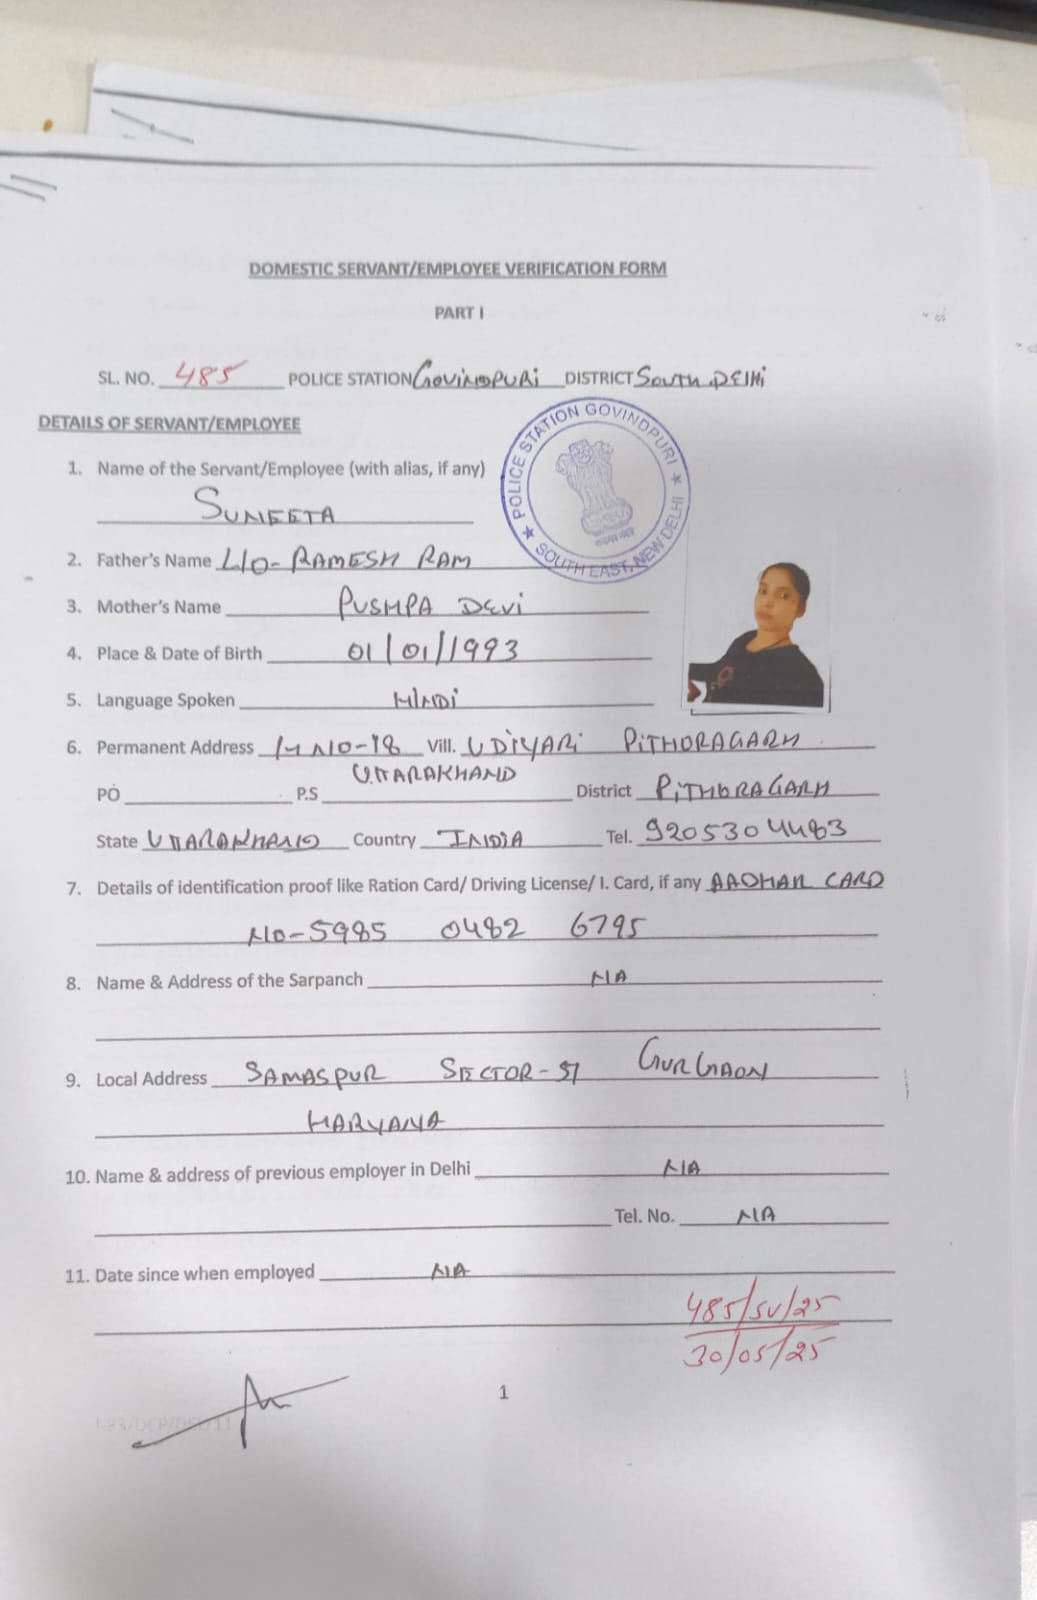 DOMESTIC SERVANT/EMPLOYEE VERIFICATION FORM
PART I
SL. NO. 485 POLICE STATION GOVINDPURI DISTRICT SOUTH DELHI
DETAILS OF SERVANT/EMPLOYEE
★ POLICE STATION GOVINDPURI ★ SOUTH EAST, NEW DELHI
1. Name of the Servant/Employee (with alias, if any)
SUNEETA
2. Father's Name RAMESH RAM
3. Mother's Name PUSHPA DEVI
4. Place & Date of Birth 01/01/1993
5. Language Spoken HINDI
6. Permanent Address H NO-18 Vill. UDIYARI PITHORAGARH
UTTARAKHAND
PO P.S District PITHORAGARH
State UTTARAKHAND Country INDIA Tel. 9205304483
7. Details of identification proof like Ration Card/ Driving License/ I. Card, if any AADHAR CARD
NO-5985 0482 6795
8. Name & Address of the Sarpanch NA
9. Local Address SAMASPUR SECTOR-51 GURGAON
HARYANA
10. Name & address of previous employer in Delhi NA
Tel. No. NA
11. Date since when employed NA
485/SV/25
30/05/25
1